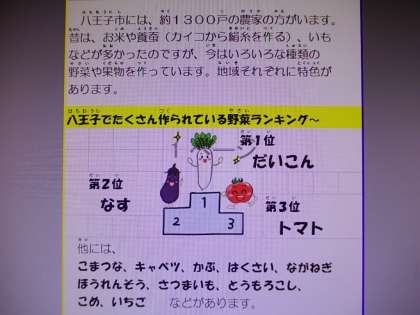 八王子市には、約１３００戸の農家の方がいます。
昔は、お米や養蚕（カイコから絹糸を作る）、いも
などが多かったのですが、今はいろいろな種類の
野菜や果物を作っています。地域それぞれに特色が
あります。
八王子でたくさん作られている野菜ランキング～
第１位
だいこん
第２位
なす
第３位
トマト
1
2
3
他には、
こまつな、キャベツ、かぶ、はくさい、ながねぎ
ほうれんそう、さつまいも、とうもろこし、
こめ、いちご　などがあります。